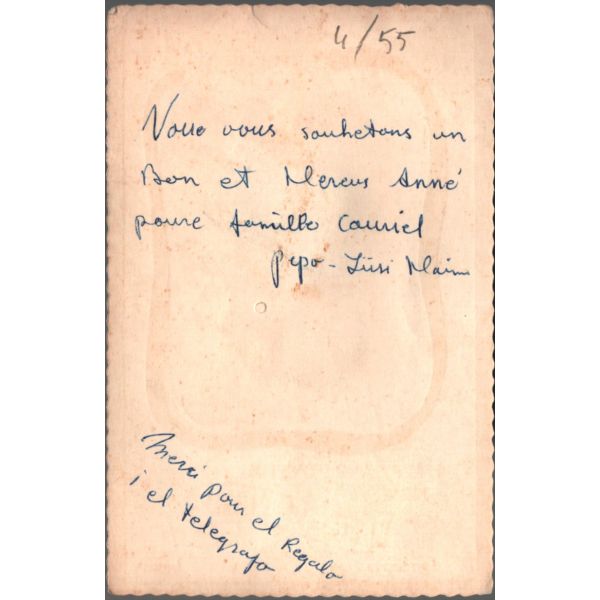 4/55
Nous vous souhetons un
Bon et Hereus Anné
poure famille Couriel
pepo - Lusi Maim
Merci pour el Regalo
i el telegrafo